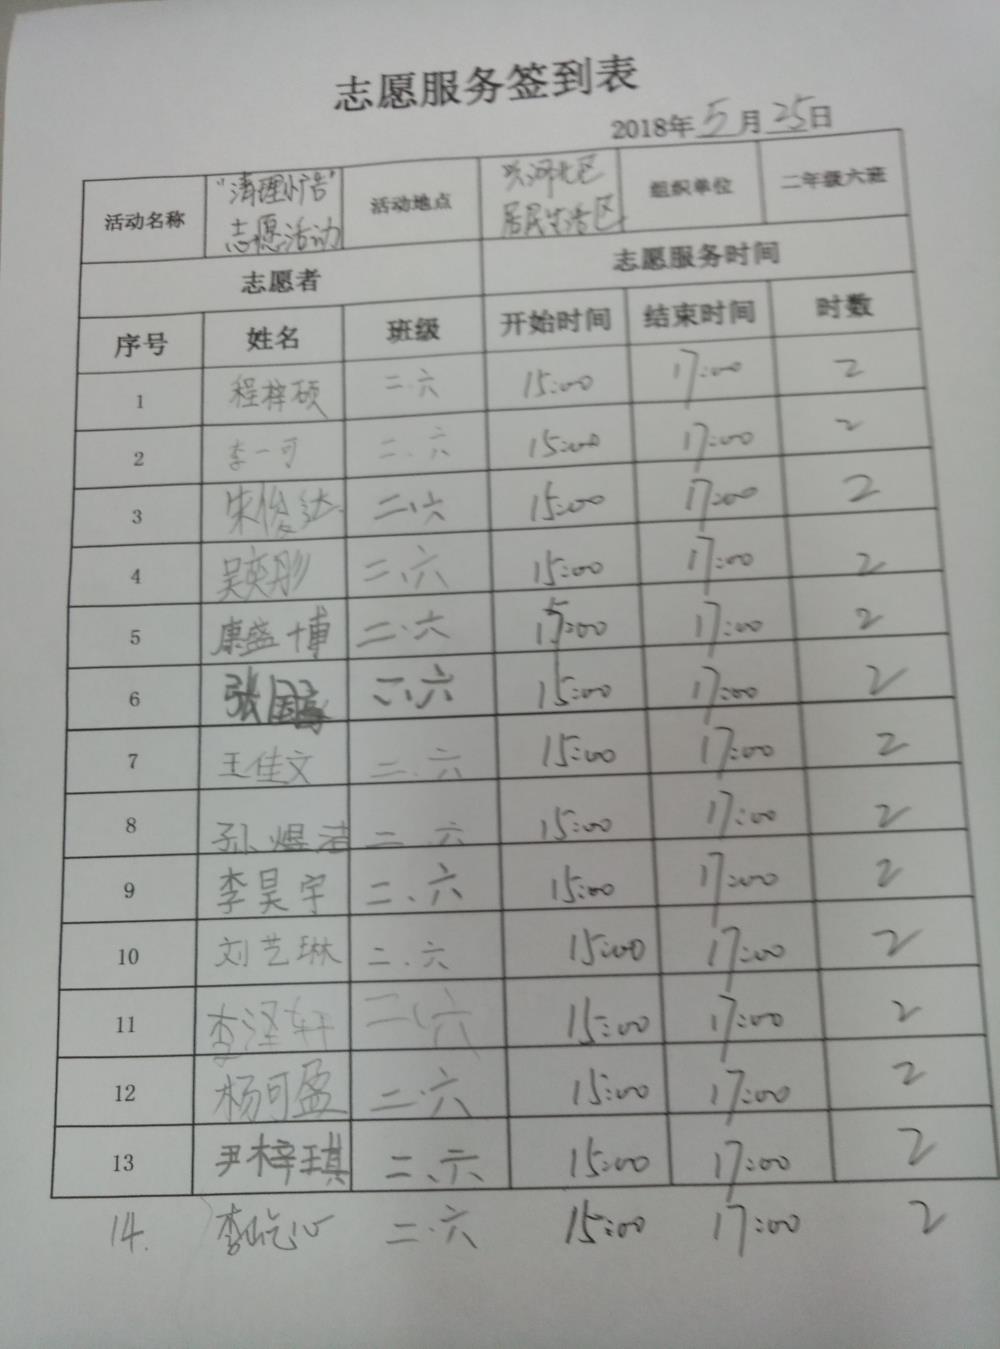 志愿服务签到表
2018年5月25日
活动名称 "清理小广告" 志愿活动 活动地点 兴河北区 居民生活区 组织单位 二年级六班
志愿者 志愿服务时间
序号 姓名 班级 开始时间 结束时间 时数
1 程梓硕 二.六 15:00 17:00 2
2 李一可 二.六 15:00 17:00 2
3 宋俊达 二.六 15:00 17:00 2
4 吴奕彤 二.六 15:00 17:00 2
5 康盛博 二.六 15:00 17:00 2
6 张国豪 二.六 15:00 17:00 2
7 王佳文 二.六 15:00 17:00 2
8 孙煜洁 二.六 15:00 17:00 2
9 李昊宇 二.六 15:00 17:00 2
10 刘艺琳 二.六 15:00 17:00 2
11 李泽轩 二.六 15:00 17:00 2
12 杨可盈 二.六 15:00 17:00 2
13 尹梓琪 二.六 15:00 17:00 2
14. 李屹心 二.六 15:00 17:00 2